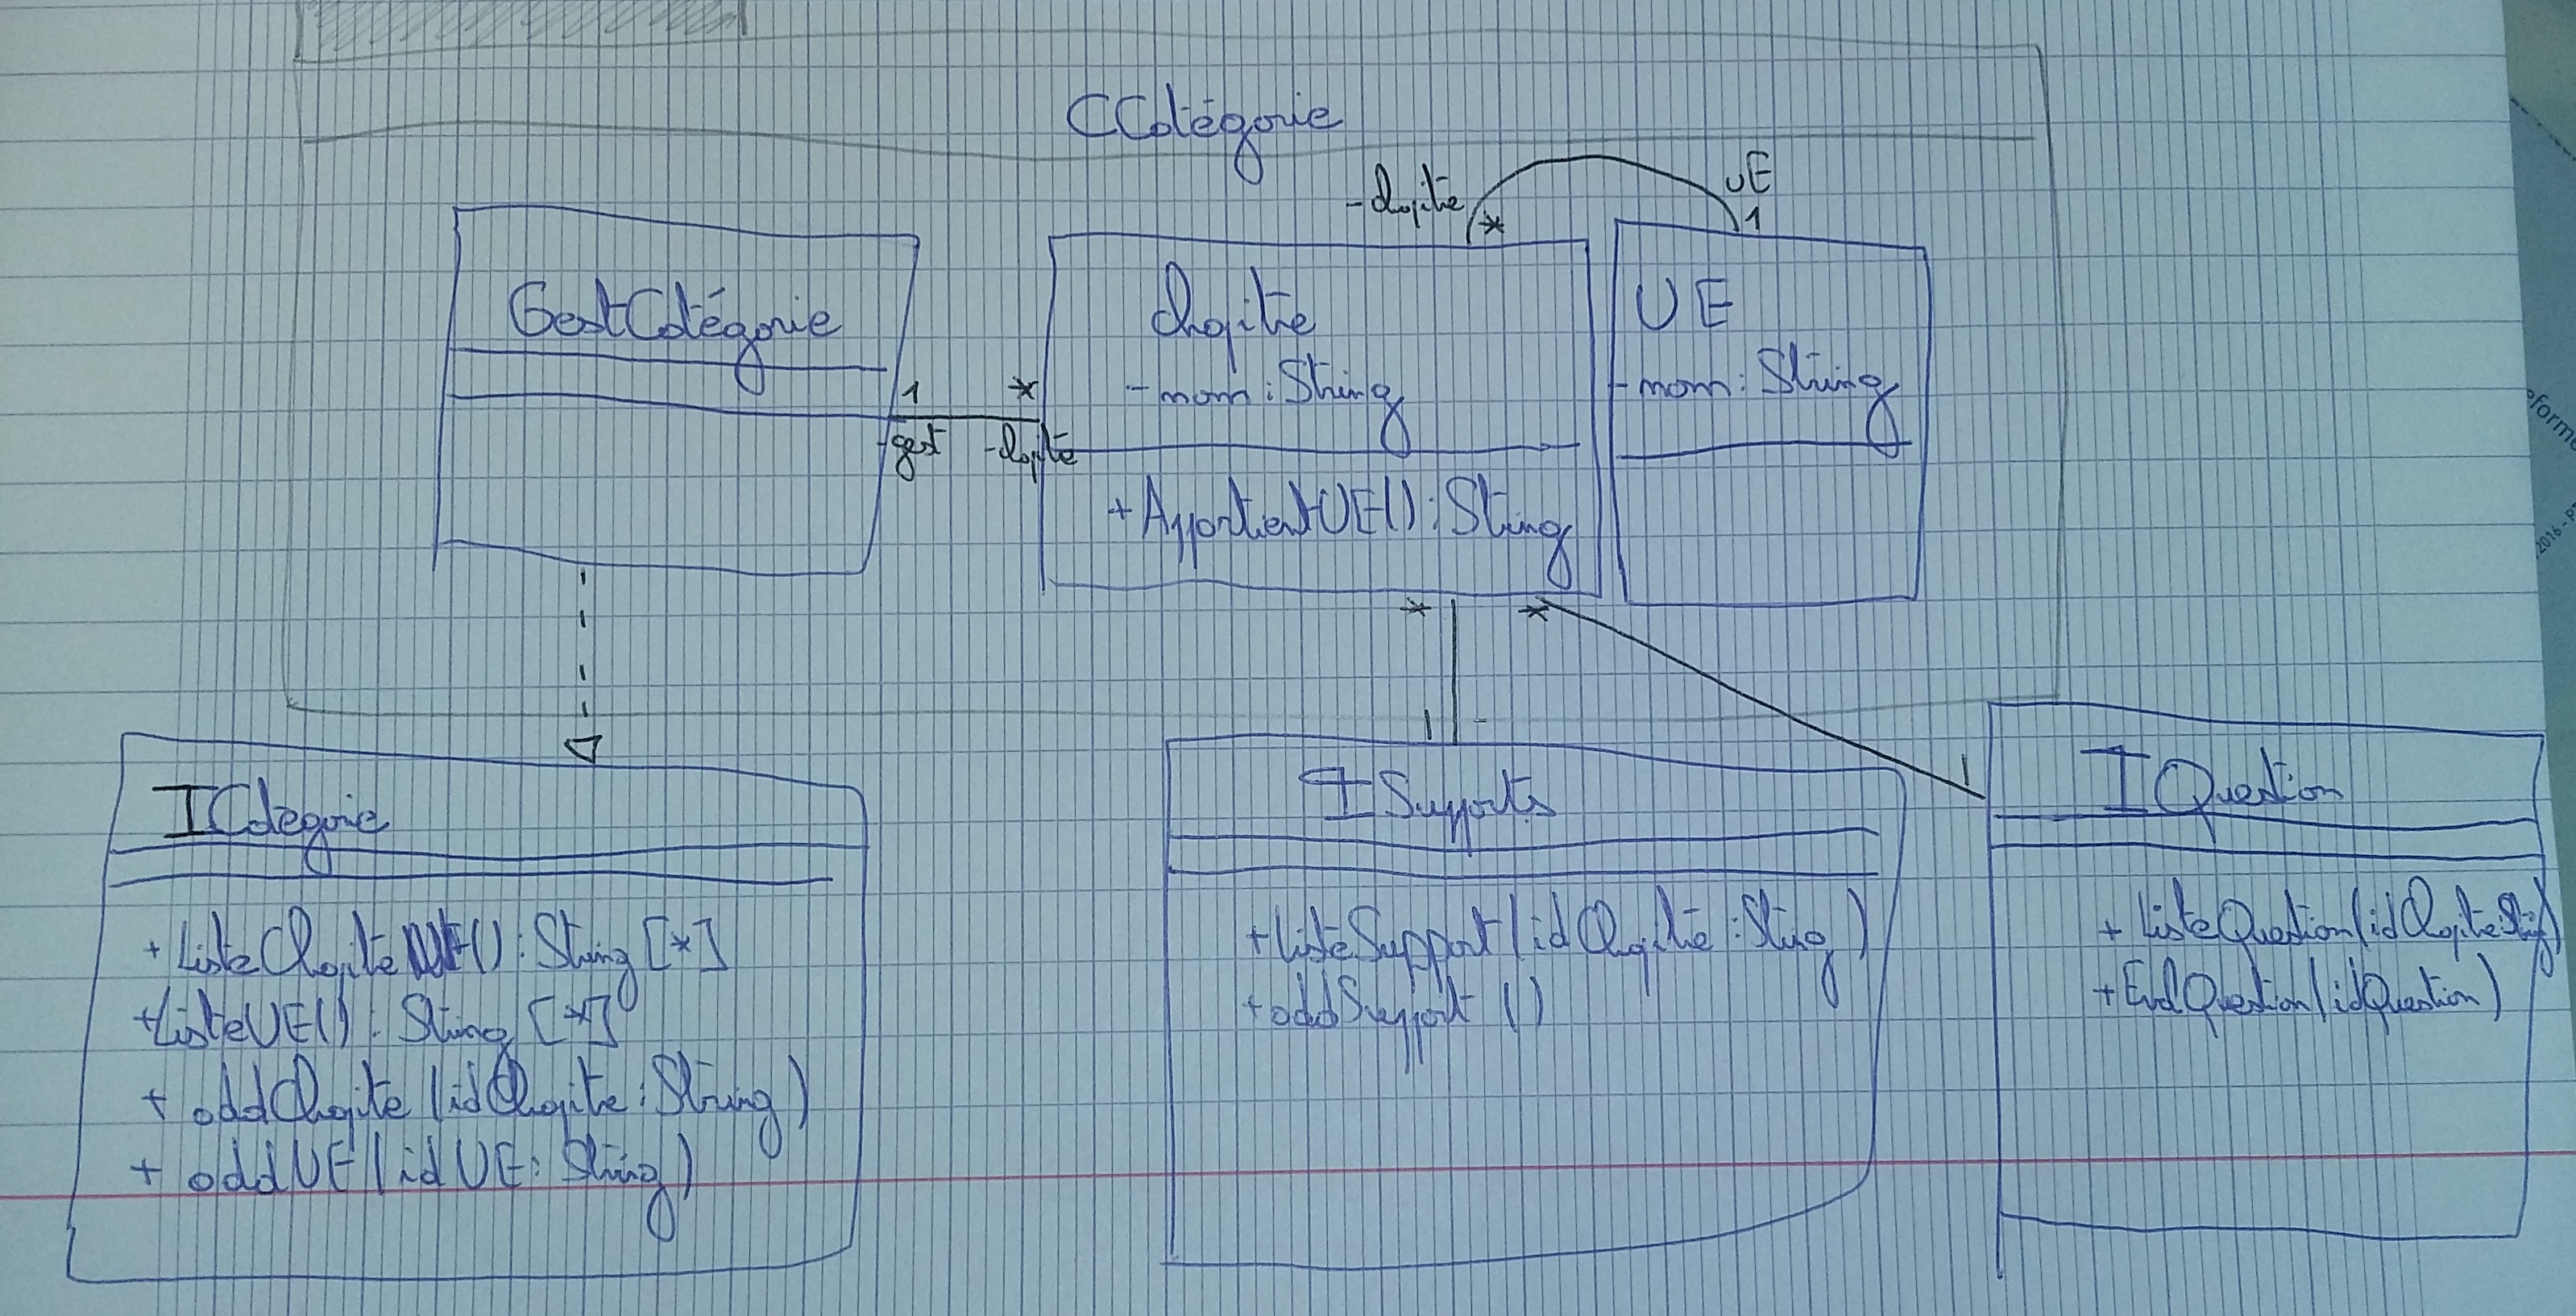 CCatégorie
-chapitre
*
UE
1
GestCatégorie
1
*
-gest
-chapitre
Chapitre
-nom : String
+AppartientUE() : String
UE
-nom : String
*
*
1
-
1
ICategorie
+ListeChapitre() : String [*]
+ListeUE() : String [*]
+ addChapitre (idChapitre : String)
+ addUE (idUE : String)
ISupports
+ListeSupport (idChapitre : String)
+addSupport ()
IQuestion
+ ListeQuestion(idChapitre:String)
+EvalQuestion(idQuestion)
eforme
2016 - P